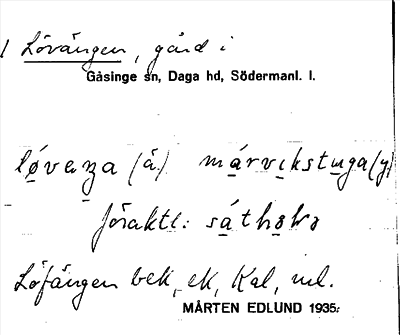 1 Lövängen, gård i
Gåsinge sn, Daga hd, Södermanl. l.
løvaŋa (ä.) márvikstuga (y)
föraktl:
Löfängen bek, ek, Kal, ml.
MÅRTEN EDLUND 1935.